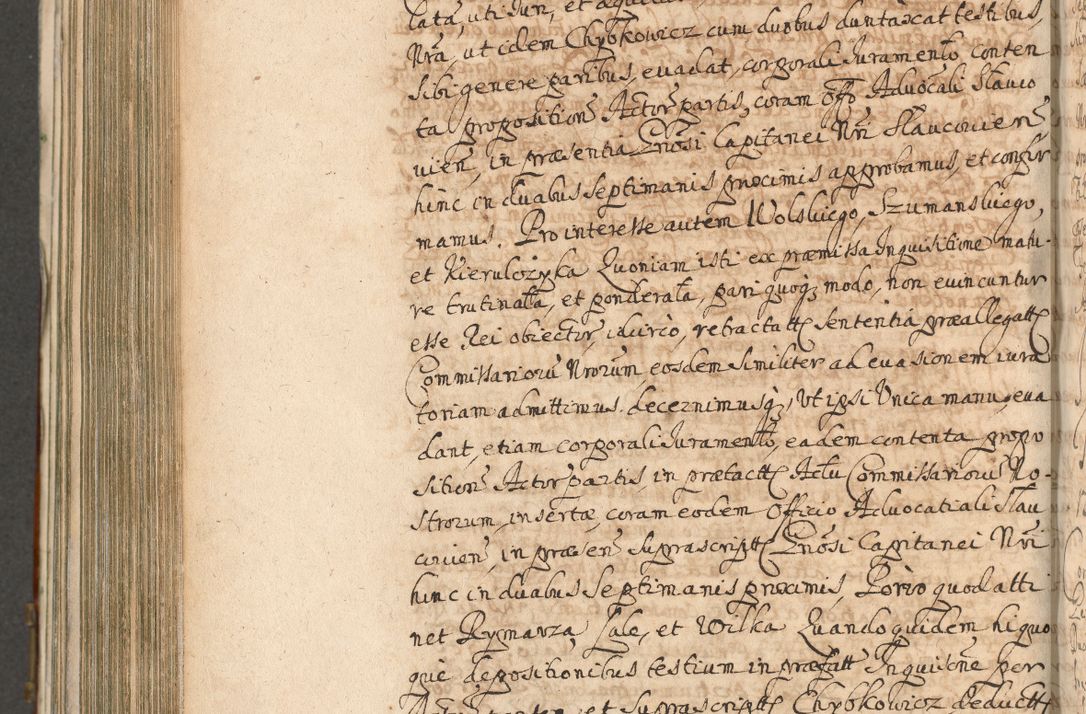 lata, uti Iun, et
Nrã, ut idem Chybkowicz cum duobus duntaxat testibus,
sibi genere paribus, evadat, corporali Iuramento, conten
ta propositionẽ Actorẽ partis, coram Offo Advocali Slauco
vień, in præsentia Gnõsi Capitanei Nri Slaucovień,
hinc in duabus septimanis proximis approbamus, et confir
mamus. Pro interesse autem Wolskiego, Szumanskiego,
et Kierulożyka Quoniam isti ex præmissa Inquisitione matu-
re trutinata, et ponderata, pari quoq; modo, non evincuntur
esse Rei obiectorũ, idcirco, retractatt sententia præallegatt
Commissarioru Nrorum, eosdem similiter ad evasionem iura
toriam admittimus. decernimusq;, Ut ipsi Unica manu, eva
dant, etiam corporali Iuramento, eadem contenta propo
sitionẽ Actorẽ partis, in prætactt Actu Commissarioru No-
strorum, insertæ, coram eodem Officio Advocatiali Slau
covień, in præsen suprascriptt Gnõsi Capitanei Nri
hinc in duabus septimanis proximis, Porro quod atti
net Rymarza, Lale, et Wilka Quandoquidem hi quo
què depositionibus testium in præfatt Inquisitne per
et Suprascriptt Chybkowicz deductt